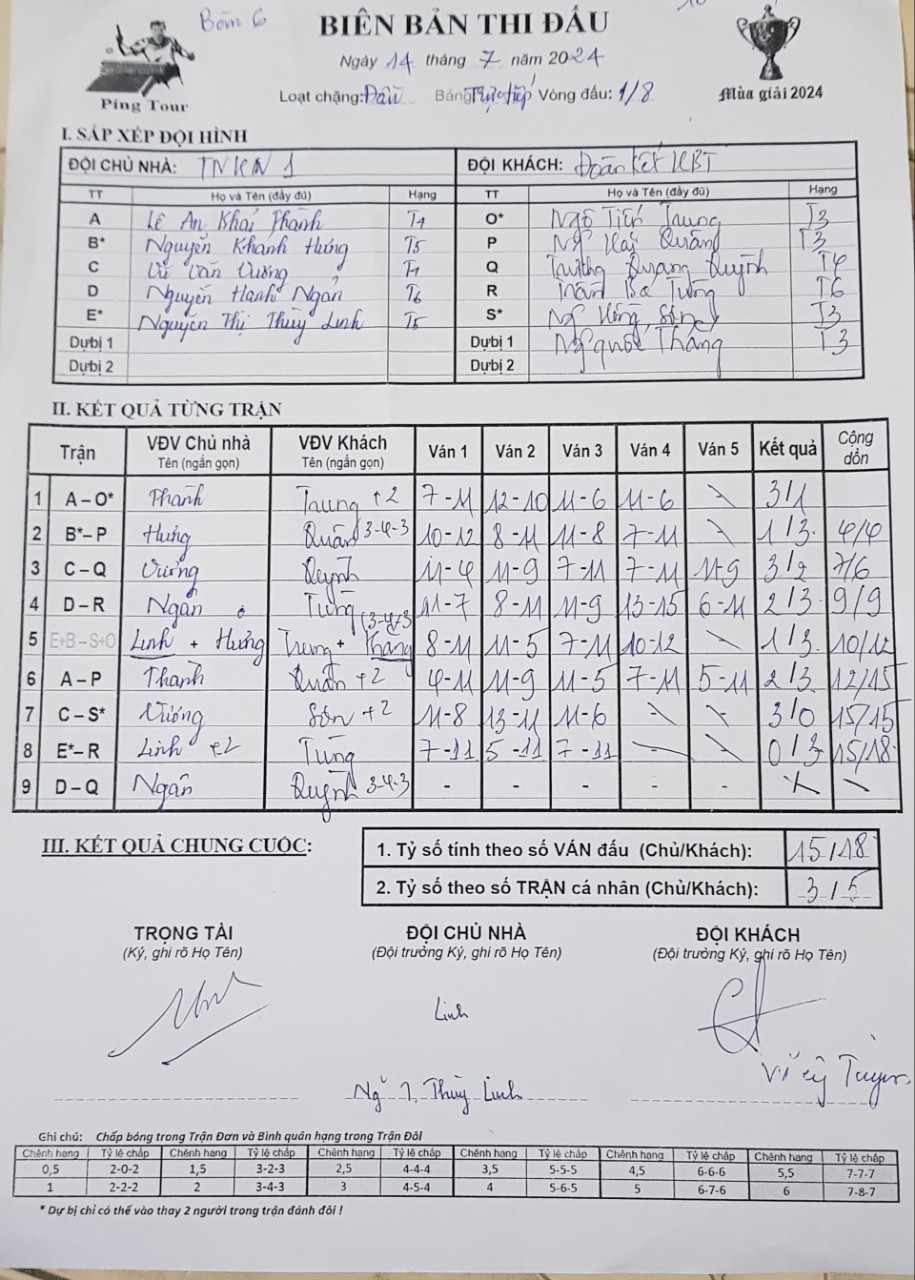 Bàn 6
BIÊN BẢN THI ĐẤU
Ngày 14 tháng 7 năm 2024
Ping Tour
Loạt chặng: Đấu Bảng Trực tiếp Vòng đấu: 1/8
Mùa giải 2024
I. SẮP XẾP ĐỘI HÌNH
ĐỘI CHỦ NHÀ: TNKN 1 ĐỘI KHÁCH: Đoàn Kết KBT
TT Họ và Tên (đầy đủ) Hạng TT Họ và Tên (đầy đủ) Hạng
A Lê An Khải Thành T4 O* Ngô Tiến Trung T3
B* Nguyễn Khanh Hưng T5 P Ng Hải Quân T3
C Vũ Văn Vương T4 Q Trương Quang Quỳnh T4
D Nguyễn Hạnh Ngân T6 R Trần Bá Tùng T6
E* Nguyễn Thị Thùy Linh T5 S* Ng Hồng Sơn T3
Dựbị 1 Dựbị 1 Ng quốc Thắng T3
Dựbị 2 Dựbị 2
II. KẾT QUẢ TỪNG TRẬN
Trận VĐV Chủ nhà Tên (ngắn gọn) VĐV Khách Tên (ngắn gọn) Ván 1 Ván 2 Ván 3 Ván 4 Ván 5 Kết quả Cộng dồn
1 A – O* Thành Trung +2 7-11 12-10 11-6 11-6 3/1
2 B*– P Hưng Quân 3-4-3 10-12 8-11 11-8 7-11 1/3 4/4
3 C – Q Vương Quỳnh 11-4 11-9 7-11 7-11 11-9 3/2 7/6
4 D – R Ngân Tùng 11-7 8-11 11-9 13-15 6-11 2/3 9/9
5 E+B – S+O Linh + Hưng Trung + Thắng (3-4-3 8-11 11-5 7-11 10-12 1/3 10/12
6 A – P Thành Quân +2 4-11 11-9 11-5 7-11 5-11 2/3 12/15
7 C – S* Vương Sơn +2 11-8 13-11 11-6 3/0 15/15
8 E*– R Linh +2 Tùng 7-11 5-11 7-11 0/3 15/18
9 D – Q Ngân Quỳnh 3-4-3 - - - - -
III. KẾT QUẢ CHUNG CUỘC:
1. Tỷ số tính theo số VÁN đấu (Chủ/Khách): 15/18
2. Tỷ số theo số TRẬN cá nhân (Chủ/Khách): 3/5
TRỌNG TÀI ĐỘI CHỦ NHÀ ĐỘI KHÁCH
(Ký, ghi rõ Họ Tên) (Đội trưởng Ký, ghi rõ Họ Tên) (Đội trưởng Ký, ghi rõ Họ Tên)
Linh
Ng T. Thùy Linh
Ghi chú: Chấp bóng trong Trận Đơn và Bình quân hạng trong Trận Đôi
Chênh hạng Tỷ lệ chấp Chênh hạng Tỷ lệ chấp Chênh hạng Tỷ lệ chấp Chênh hạng Tỷ lệ chấp Chênh hạng Tỷ lệ chấp Chênh hạng Tỷ lệ chấp
0,5 2-0-2 1,5 3-2-3 2,5 4-4-4 3,5 5-5-5 4,5 6-6-6 5,5 7-7-7
1 2-2-2 2 3-4-3 3 4-5-4 4 5-6-5 5 6-7-6 6 7-8-7
* Dự bị chỉ có thể vào thay 2 người trong trận đánh đôi !